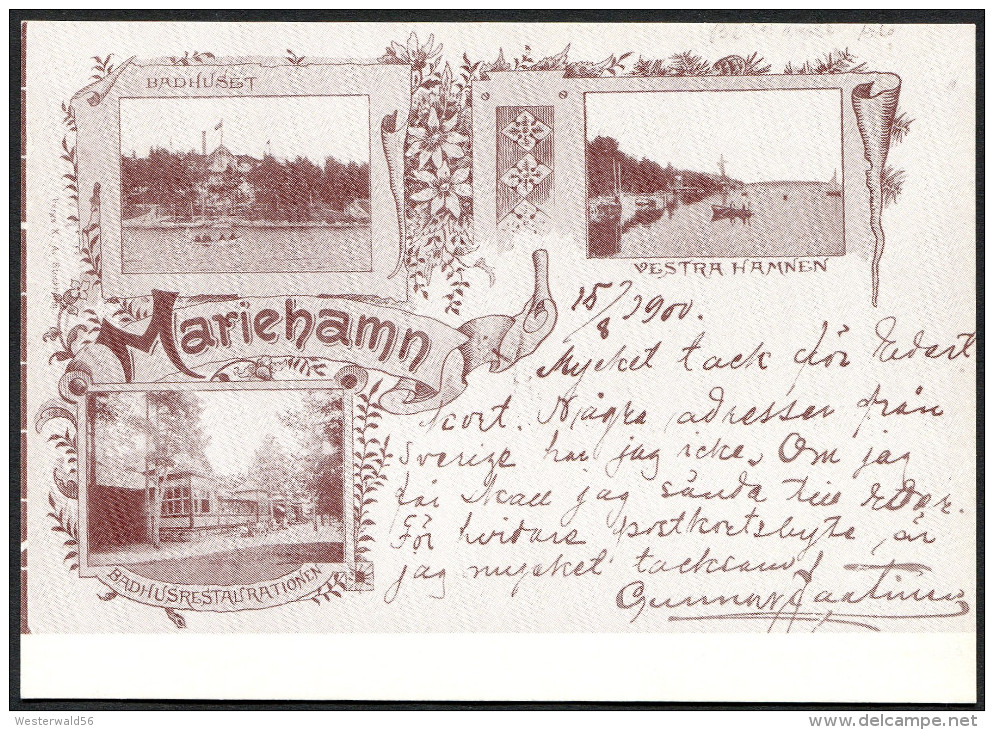 BADHUSET
VESTRA HAMNEN
Mariehamn
BADHUSRESTAURATIONEN
15/8 1900.
Mycket tack för Edert
kort. Några adresser från
Sverige har jag icke. Om jag
får skall jag sända till Eder.
För vidare postkortsbyte är
jag mycket tacksam!
Gunnar
Westerwald56
www.delcampe.net